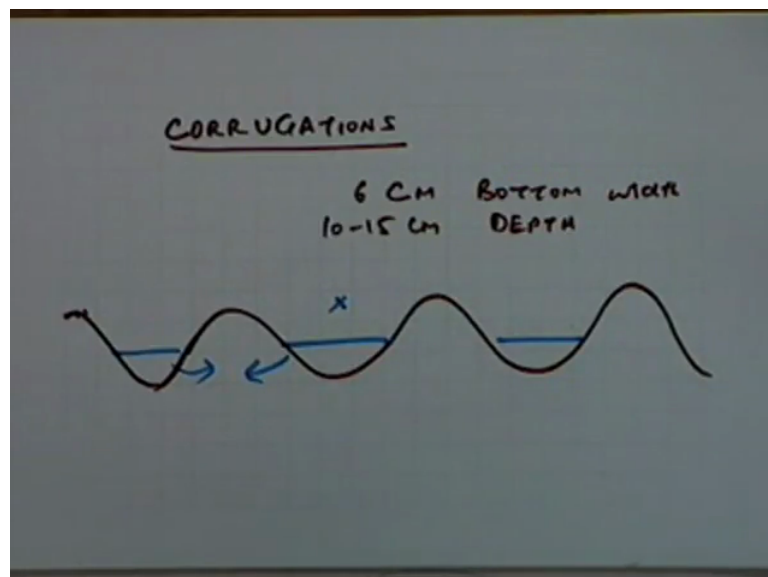 CORRUGATIONS
6 CM BOTTOM width
10-15 CM DEPTH
x